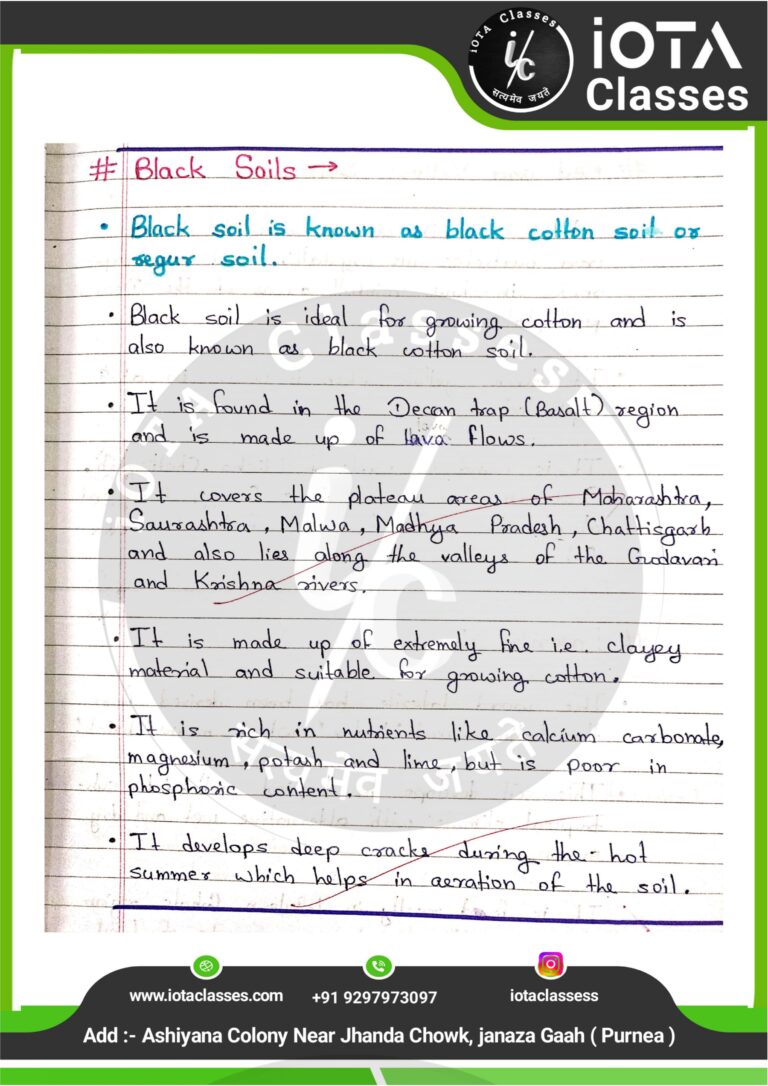 iOTA Classes
सत्यमेव जयते
iOTA
Classes
# Black Soils →
• Black soil is known as black cotton soil or
regur soil.
• Black soil is ideal for growing cotton and is
also known as black cotton soil.
• It is found in the Deccan trap (Basalt) region
and is made up of lava flows.
• It covers the plateau areas of Maharashtra,
Saurashtra, Malwa, Madhya Pradesh, Chattisgarh
and also lies along the valleys of the Godavari
and Krishna rivers.
• It is made up of extremely fine i.e. clayey
material and suitable for growing cotton.
• It is rich in nutrients like calcium carbonate,
magnesium, potash and lime, but is poor in
phosphoric content.
• It develops deep cracks during the-hot
summer which helps in aeration of the soil.
iOTA Classes
सत्यमेव जयते
www.iotaclasses.com +91 9297973097 iotaclassess
Add :- Ashiyana Colony Near Jhanda Chowk, janaza Gaah ( Purnea )